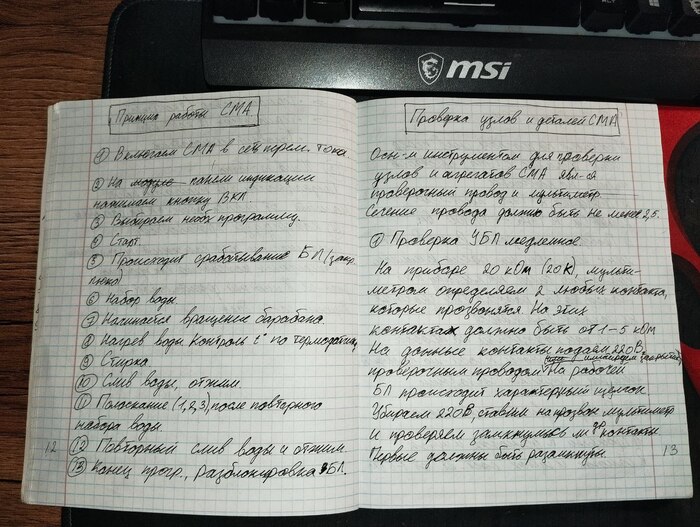 msi
Принцип работы СМА
① Включаем СМА в сеть перем. тока
② На модуле панели индикации
нажимаем кнопку ВКЛ.
③ Выбираем необх. программу.
④ Старт.
⑤ Происходит срабатывание БЛ (закр.
люка)
⑥ Набор воды.
⑦ Начинается вращение барабана.
⑧ Нагрев воды. Контроль t° по термодатчику
⑨ Стирка.
⑩ Слив воды, отжим.
⑪ Полоскание (1,2,3), после повторного
набора воды.
⑫ Повторный слив воды и отжим.
⑬ Конец прогр., разблокировка БЛ.
12
Проверка узлов и деталей СМА
Осн-м инструментом для проверки
узлов и агрегатов СМА явл-ся
проверочный провод и мультиметр.
Сечение провода должно быть не менее 2,5.
① Проверка УБЛ медленное.
На приборе 20 кОм (20К), мульти-
метром определяем 2 любых контакта,
которые прозвонятся. На этих
контактах должно быть от 1-5 кОм
На данные контакты подаём 220В
проверочным проводом На рабочей
БЛ происходит характерный щелчок.
Убираем 220В, ставим на прозвон мультиметр
и проверяем замкнулись ли контакты.
Первые должны быть разомкнуты.
13